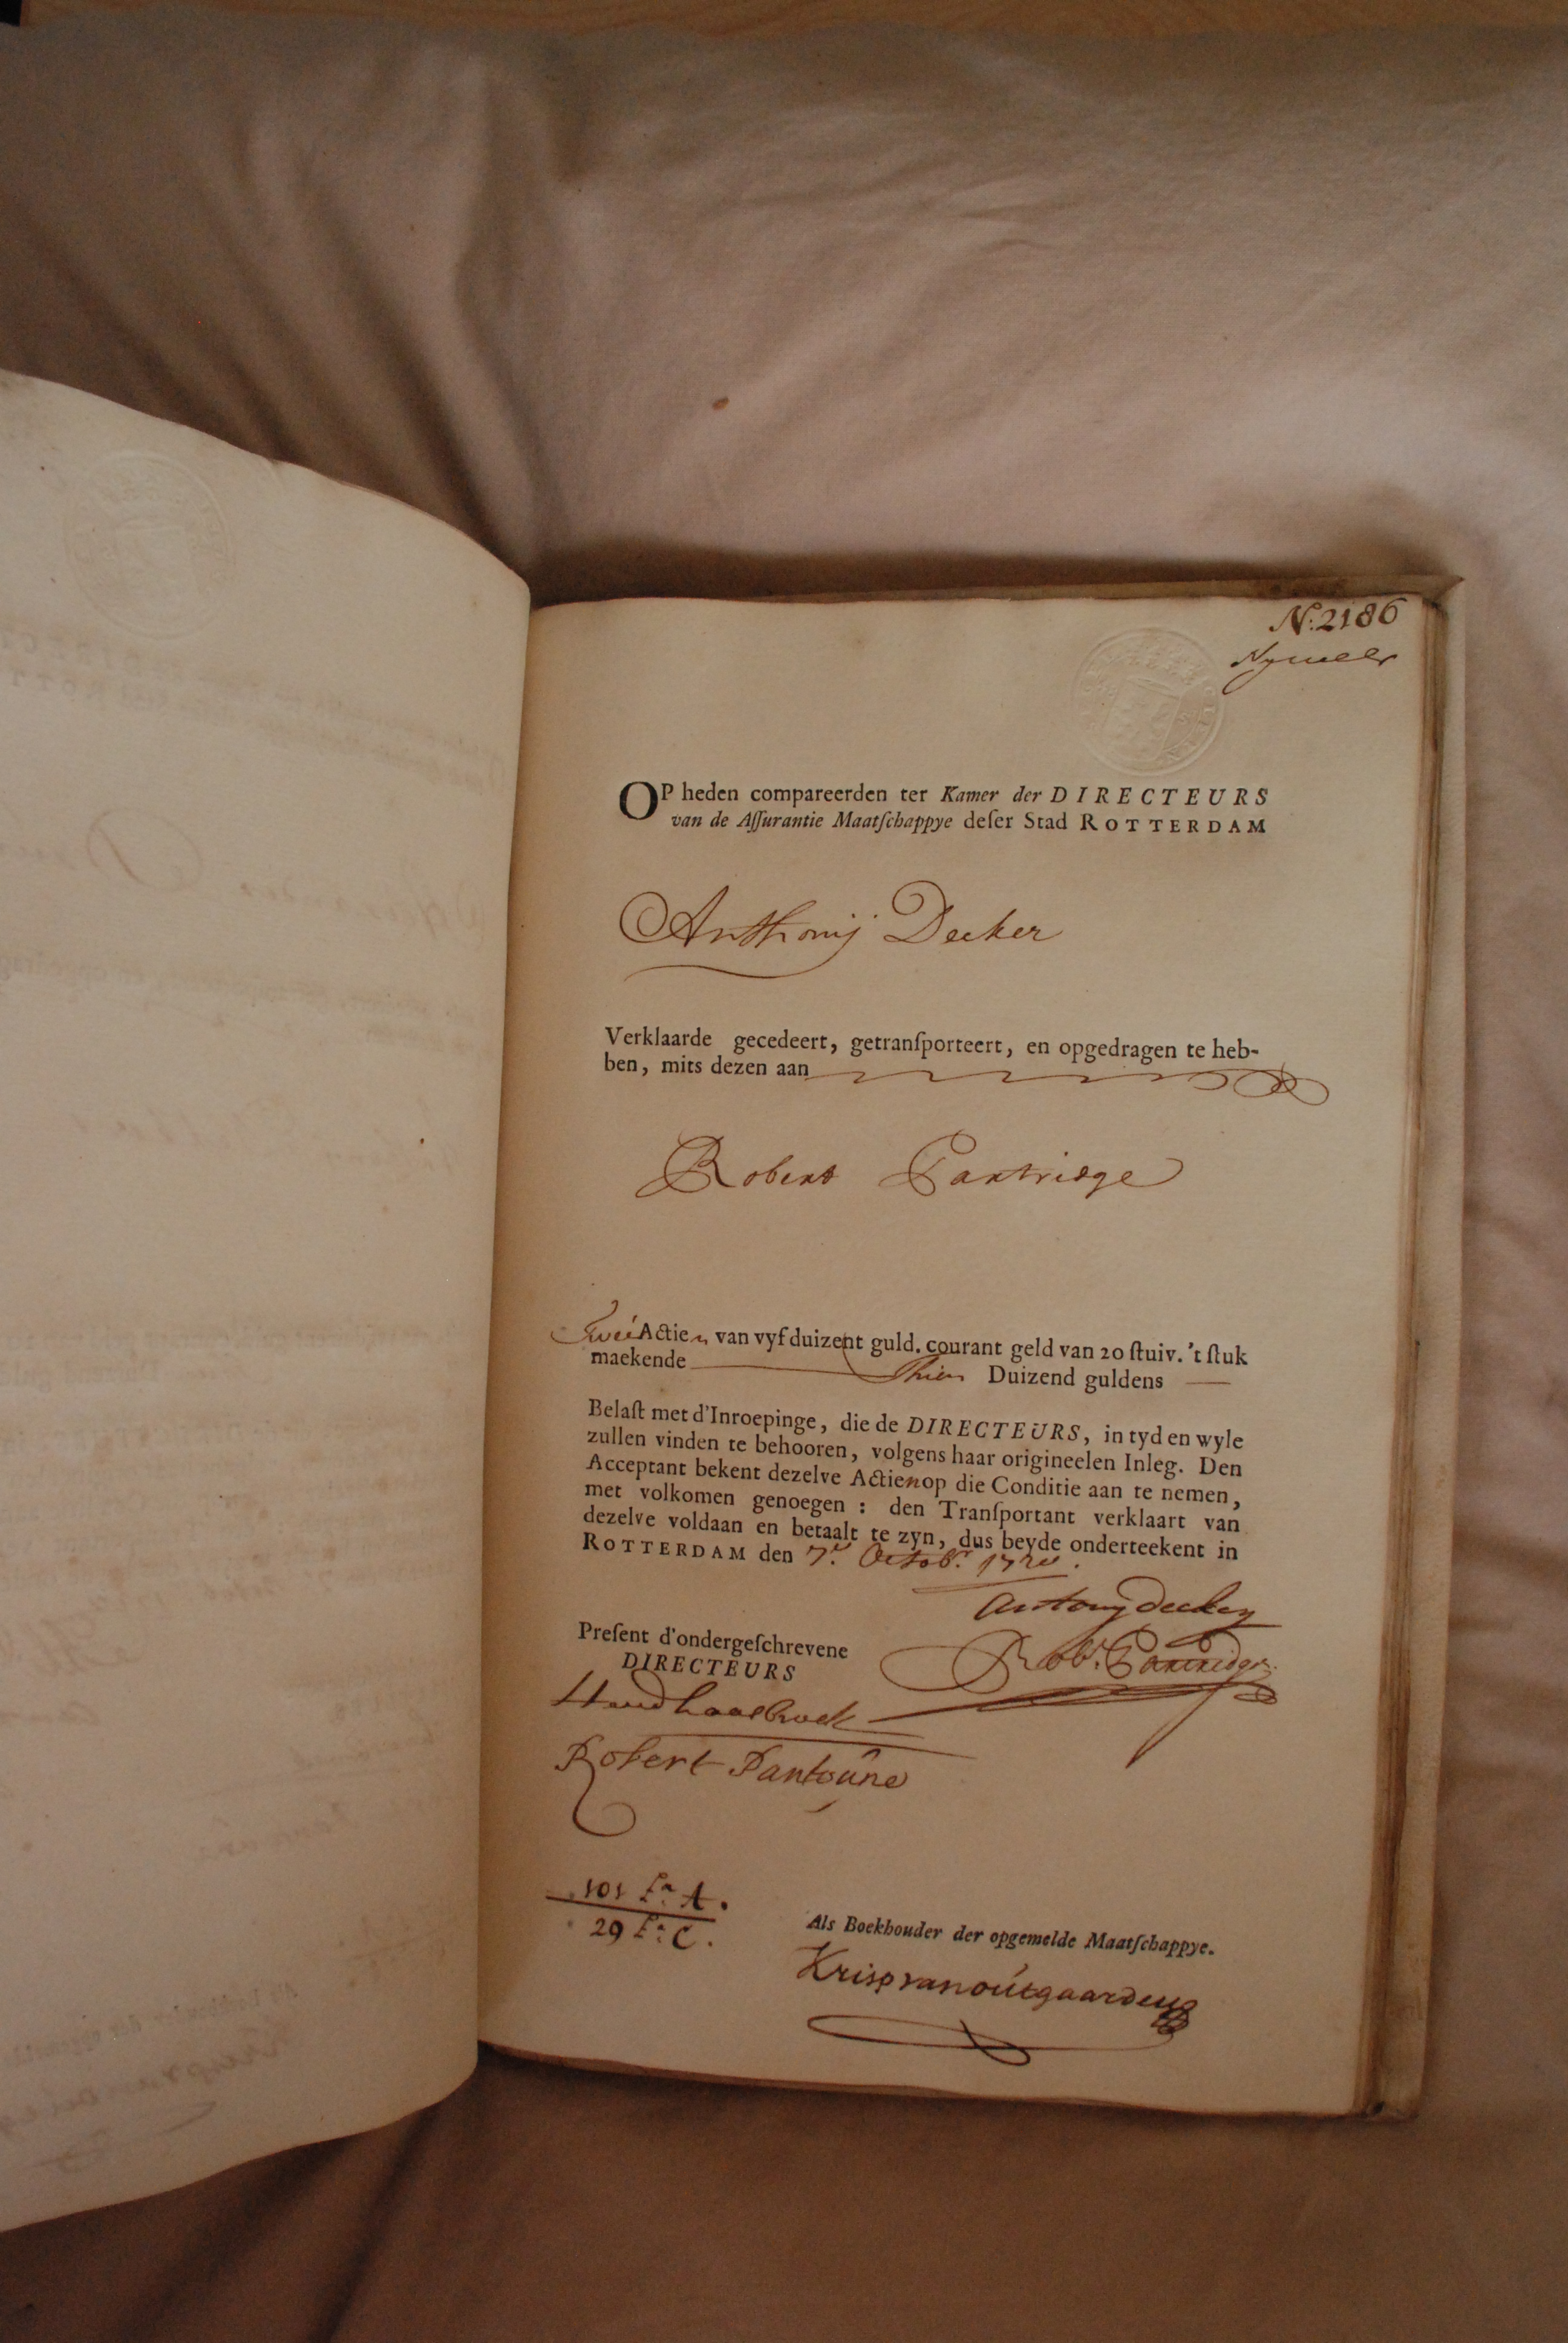 N:2186
OP heden compareerden ter Kamer der DIRECTEURS
van de Aſſurantie Maatſchappye deſer Stad ROTTERDAM
Anthonij Decker
Verklaarde gecedeert, getranſporteert, en opgedragen te heb-
ben, mits dezen aan
Robert Partridge
Twee Actien van vyf duizent guld. courant geld van 20 ſtuiv. 't ſtuk
maekende Thien Duizend guldens
Belaſt met d'Inroepinge, die de DIRECTEURS, in tyd en wyle
zullen vinden te behooren, volgens haar origineelen Inleg. Den
Acceptant bekent dezelve Actien op die Conditie aan te nemen,
met volkomen genoegen : den Tranſportant verklaart van
dezelve voldaan en betaalt te zyn, dus beyde onderteekent in
ROTTERDAM den 7e. Octobr. 1720.
Antony decker
Robt. Partridge
Preſent d'ondergeſchrevene
DIRECTEURS
Robert Pantoúne
101 Lra A.
29 Lra C.
Als Boekhouder der opgemelde Maatſchappye.
Krisp van outgaarden